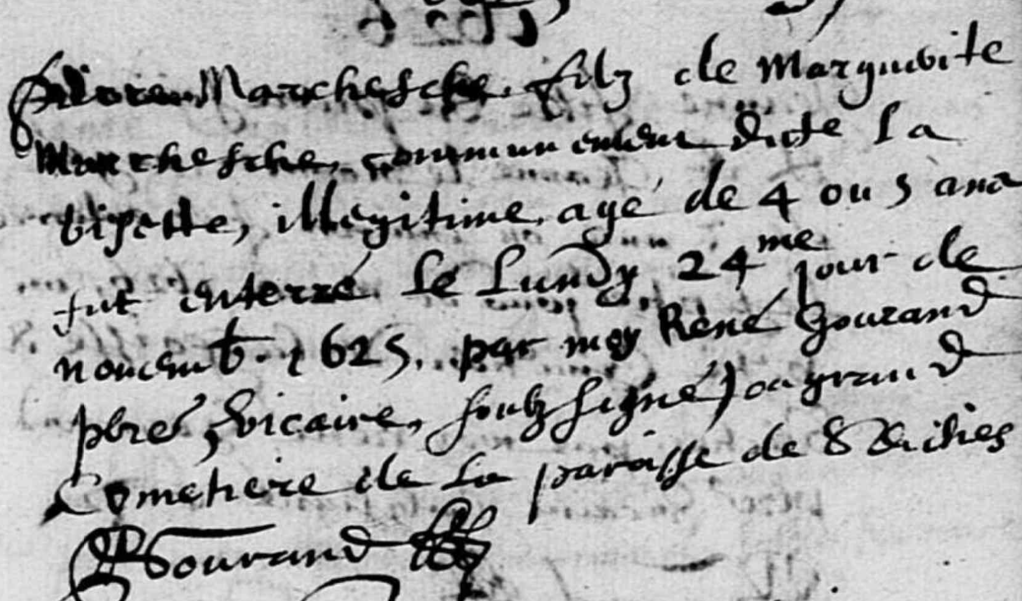 Marchesche, filz de Marguerite
Marchesche, communement dicte la
tipette, illegitime, agé de 4 ou 5 ans
fut enterré le Lundy 24me jour de
novemb. 1625. par moy René Gourand
pbre, & vicaire, soubz signé) au grand
Cometiere de la paroisse de
Gourand